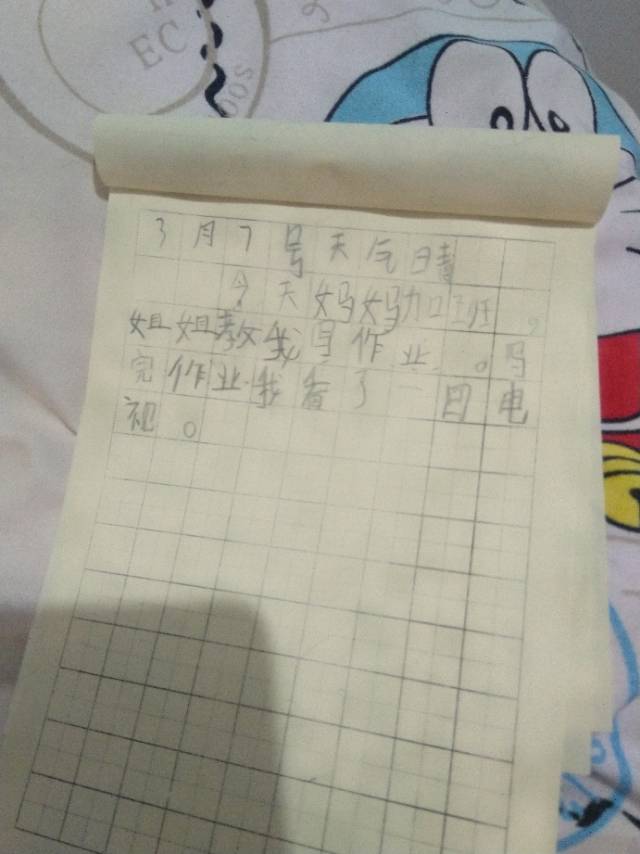 EC
3月7号天气晴
今天妈妈加班。
姐姐教我写作业。写
完作业我看了一回电
视。